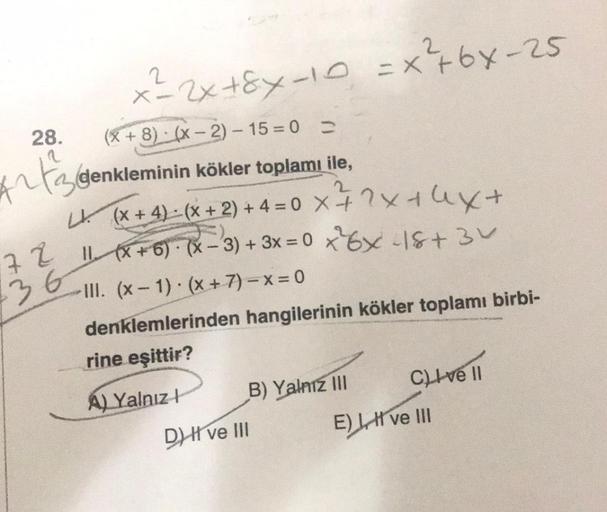 x²-2x+8x-10 = x²+6x-25
28. (x + 8) · (x – 2) – 15 = 0 =
denkleminin kökler toplamı ile,
I. (x + 4) · (x + 2) + 4 = 0 x²+2x+4x+
II. (x + 6) · (x – 3) + 3x = 0 x²6x-18+3
72
36
III. (x – 1) · (x + 7) – x = 0
denklemlerinden hangilerinin kökler toplamı birbi-
rine eşittir?
A) Yalnız I B) Yalnız III C) I ve II
D) II ve III E) I, II ve III